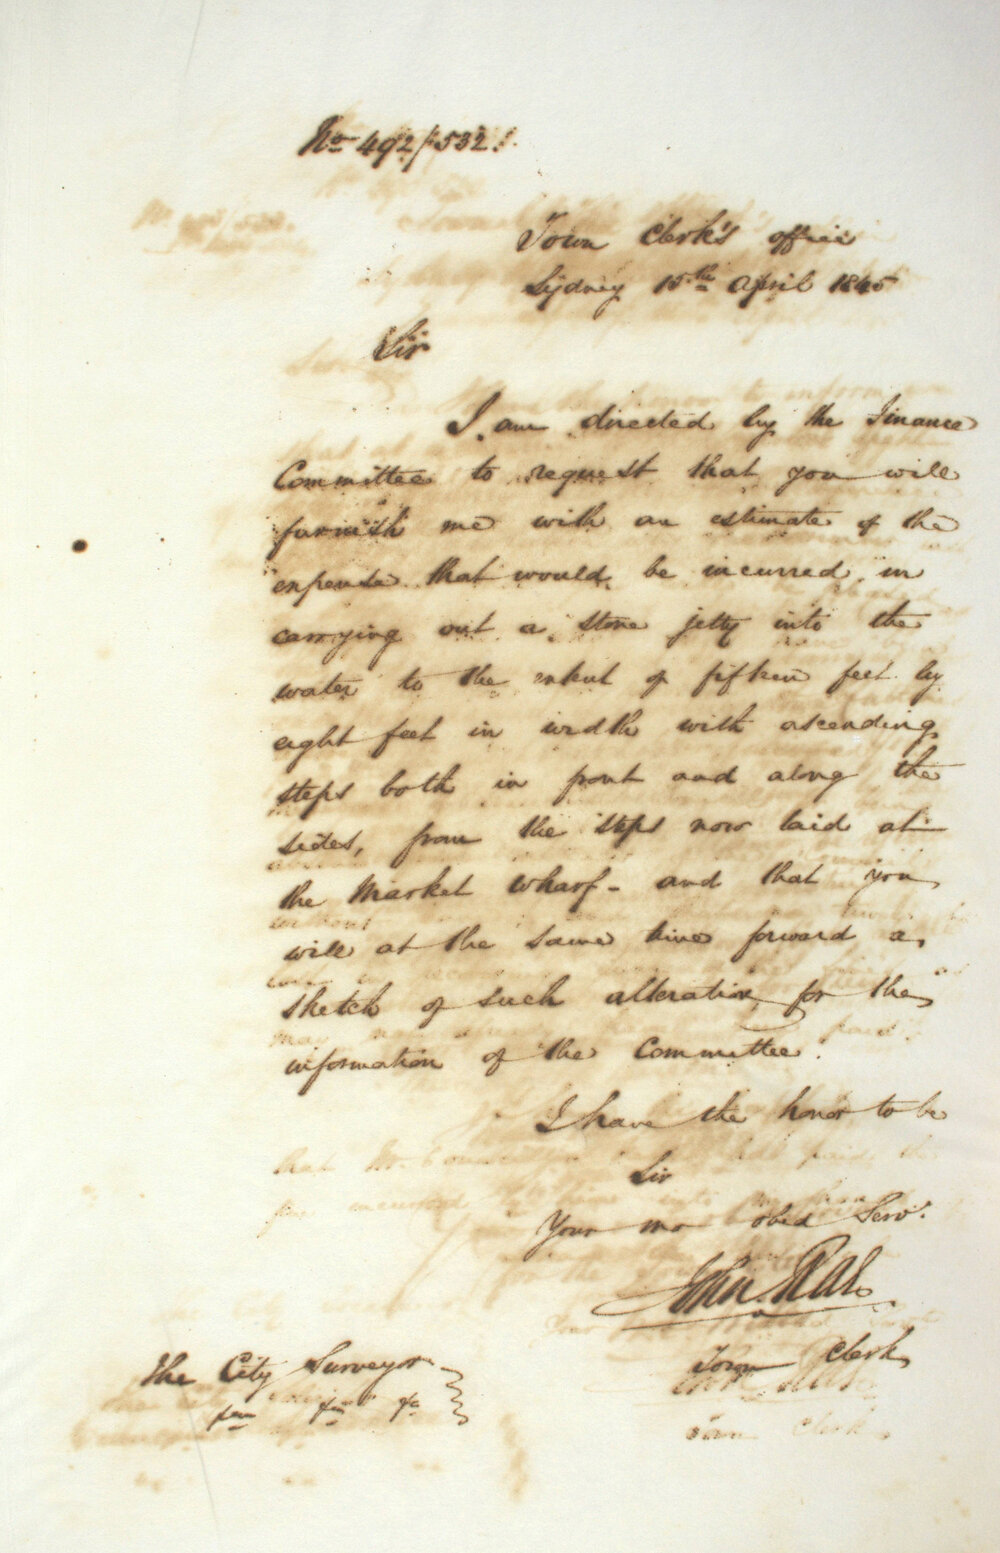 No 492/532.
Town Clerk's office
Sydney 15th April 1845
Sir
I am directed by the Finance
Committee to request that you will
furnish me with an estimate of the
expense that would be incurred in
carrying out a stone jetty into the
water to the extent of fifteen feet by
eight feet in width with ascending
steps both in front and along the
sides, from the steps now laid at
the Market Wharf - and that you
will at the same time forward a
sketch of such alteration for the
information of the Committee.
I have the honor to be
Sir
Your mo obed Serv.
John Rae
Town Clerk
The City Surveyor